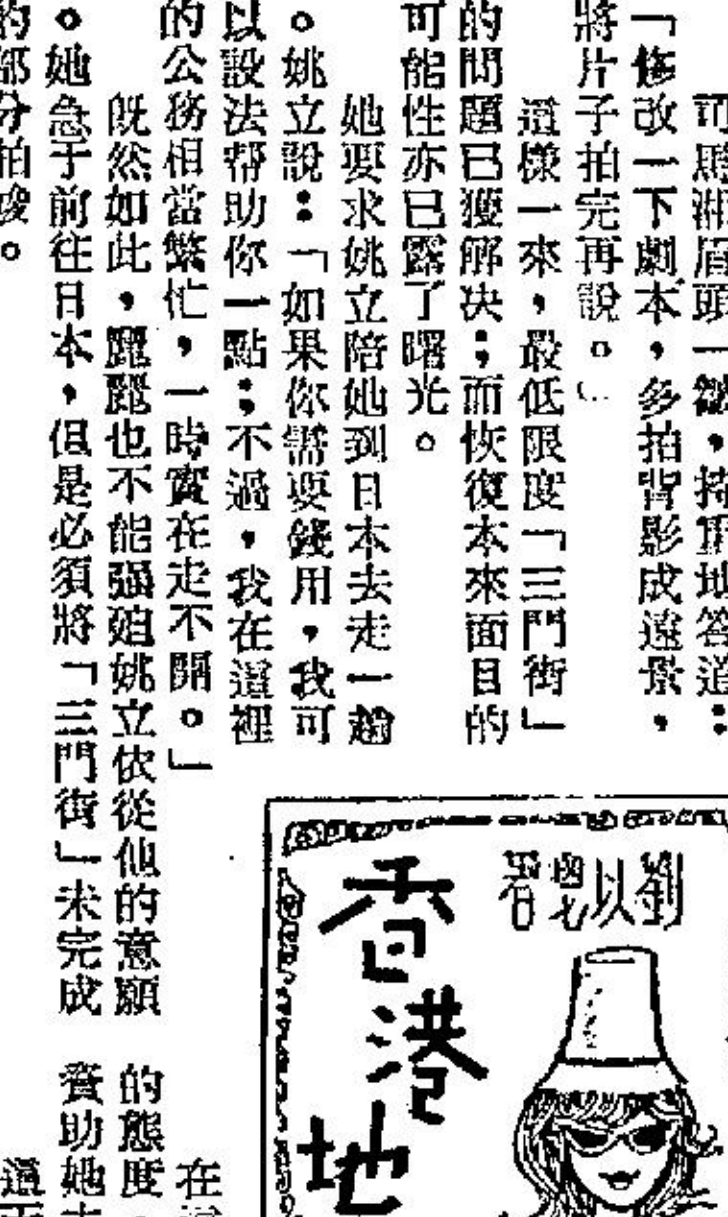 司馬洲眉頭一皺，持重地答道：
「修改一下劇本，多拍背影成遠景，
將片子拍完再說。」
這樣一來，最低限度「三門街」
的問題已獲解决；而恢復本來面目的
可能性亦已露了曙光。
她要求姚立陪她到日本去走一趟
。姚立說：「如果你需要錢用，我可
以設法幫助你一點；不過，我在這裡
的公務相當繁忙，一時實在走不開。」
既然如此，麗麗也不能强廹姚立依從他的意願
。她急于前往日本，但是必須將「三門街」未完成
的部分拍竣。
在
的態度，
資助她
這
劉以鬯著
香港地